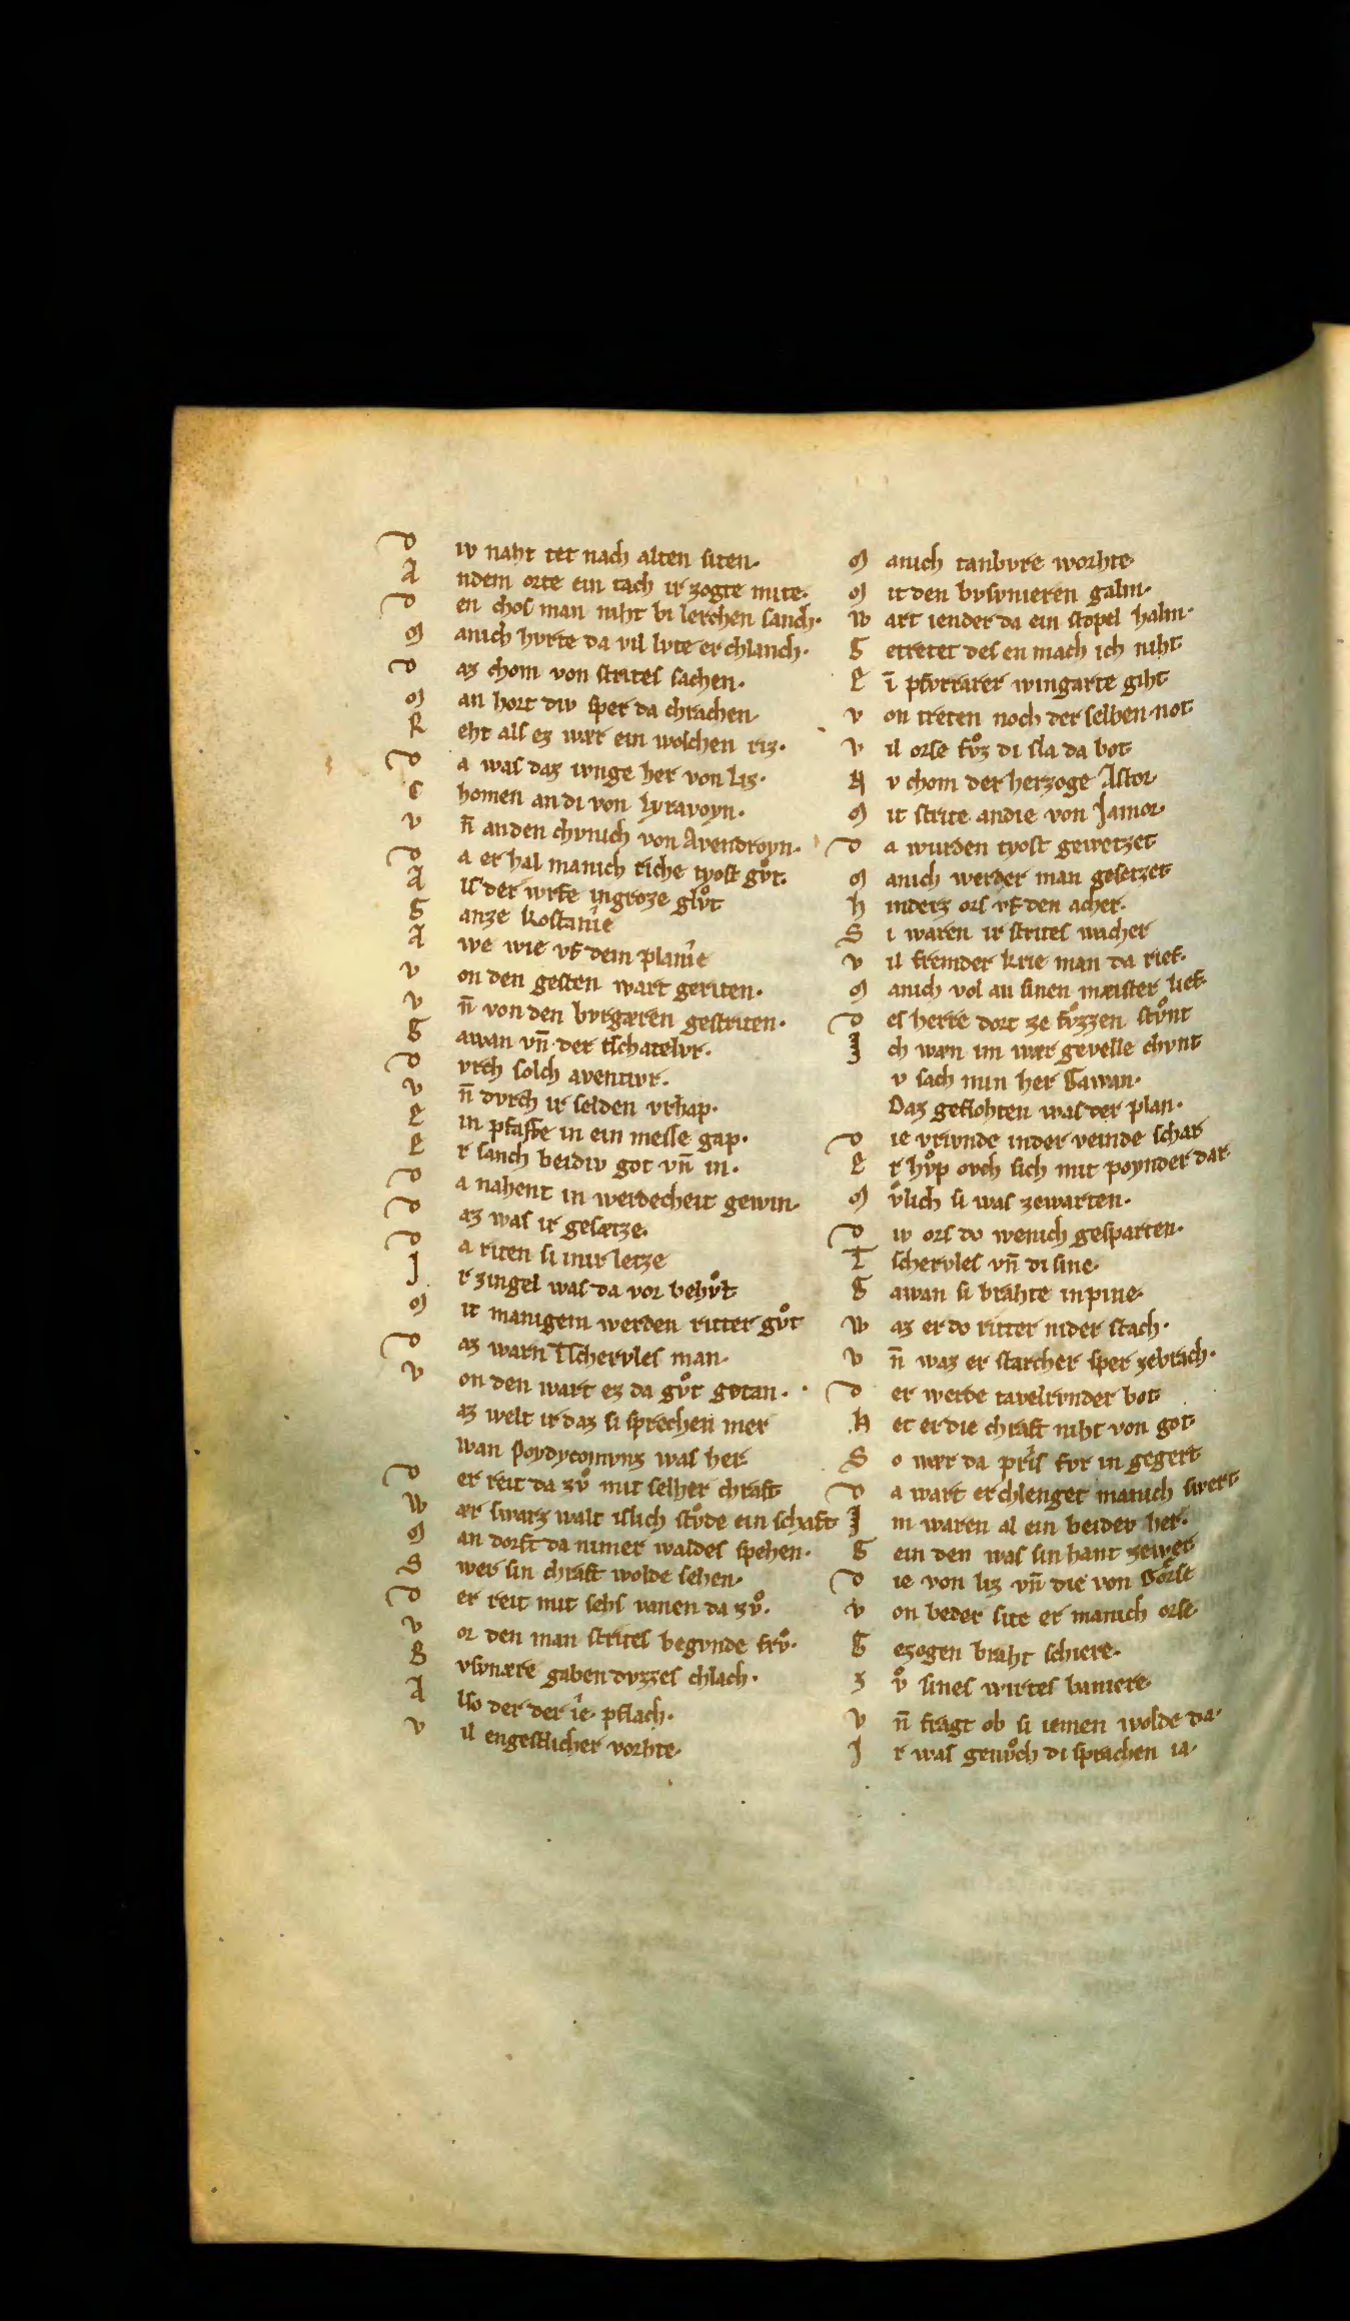 D iv naht tet nach alten siten·
A ndem orte ein tach ir zogte mite·
D en chos man niht bi lerchen sanch·
M anich hvrte da vil lvte er chlanch·
D az chom von strites sachen·
M an hort div sper da chrachen·
R eht als ez wær ein wolchen riz·
D a was daz ivnge her von Liz·
C homen an di von Lyravoyn·
V n̄ anden chvnich von Avendroyn·
D a er hal manich riche tyost gv̊t·
A ls der wrfe ingroze glv̊t
G anze kostanîe
A we wie vf dem planîe
V on den gesten wart geriten·
V n̄ von den bvrgæren gestriten·
G awan vn̄ der tschatelvr·
D vrch solch aventivr·
V n̄ dvrch ir selden vrhap·
E in pfaffe in ein messe gap·
E r sanch beidiv got vn̄ in·
D a nahent in werdecheit gewin·
D az was ir gesætze·
D a riten si inir letze
I r zingel was da vor behv̊t
M it manigem werden ritter gv̊t
D az warn Tschervles man·
V on den wart ez da gv̊t getan·
az welt ir daz si sprechen mer
wan Poydyconvnz was her·
D er reit da zv̊ mit selher chraft
W ær swarz walt islich stv̊de ein schaft
M an dorft da nimer waldes spehen·
S wer sin chraft wolde sehen·
D er reit mit sehs vanen da zv̊·
V or den man strites begvnde frv̊·
B vsvnære gaben dvzzes chlach·
A lso der der îe pflach·
V il engestlicher vorhte·
M anich tanbvre worhte·
M it den bvsvnieren galm·
W art iender da ein stopel halm·
G etretet des en mach ich niht
E ī pfvrtrarer wingarte giht
V on treten noch der selben not·
V il orse fv̊z di sla da bot·
N v chom der herzoge Astor·
M it strite andie von Jamor·
D a wurden tyost gewetzet
M anich werder man gesetzet
H inderz ors vf den acher·
S i waren ir strites wacher
V il fremder krie man da rief·
M anich vol an sinen mæister lief·
D es herre dort ze fv̊zzen stv̊nt
I ch wæn im wær gevelle chvnt
v sach min her Gawan·
Daz geflohten was der plan·
D ie vrivnde inder veinde schar
E r hv̊p ovch sich mit poynder dar·
M v̊lich si was zewarten·
D iv ors do wenich gesparten·
T schervles vn̄ di sine·
G awan si brahte inpine·
W az er do ritter nider stach·
V n̄ waz er starcher sper zebrach·
D er werde tavelrvnder bot
H et er die chraft niht von got·
S o wær da prîs fvr in gegert
D a wart erchlenget manich swert
I m waren al ein beidev her·
G ein den was sin hant zewer
D ie von liz vn̄ die von Gorse
V on beder site er manich orse·
G ezogen braht schiere·
Z v̊ sines wirtes baniere·
V n̄ fragt ob si iemen wolde da·
I r was genv̊ch di sprachen ia·